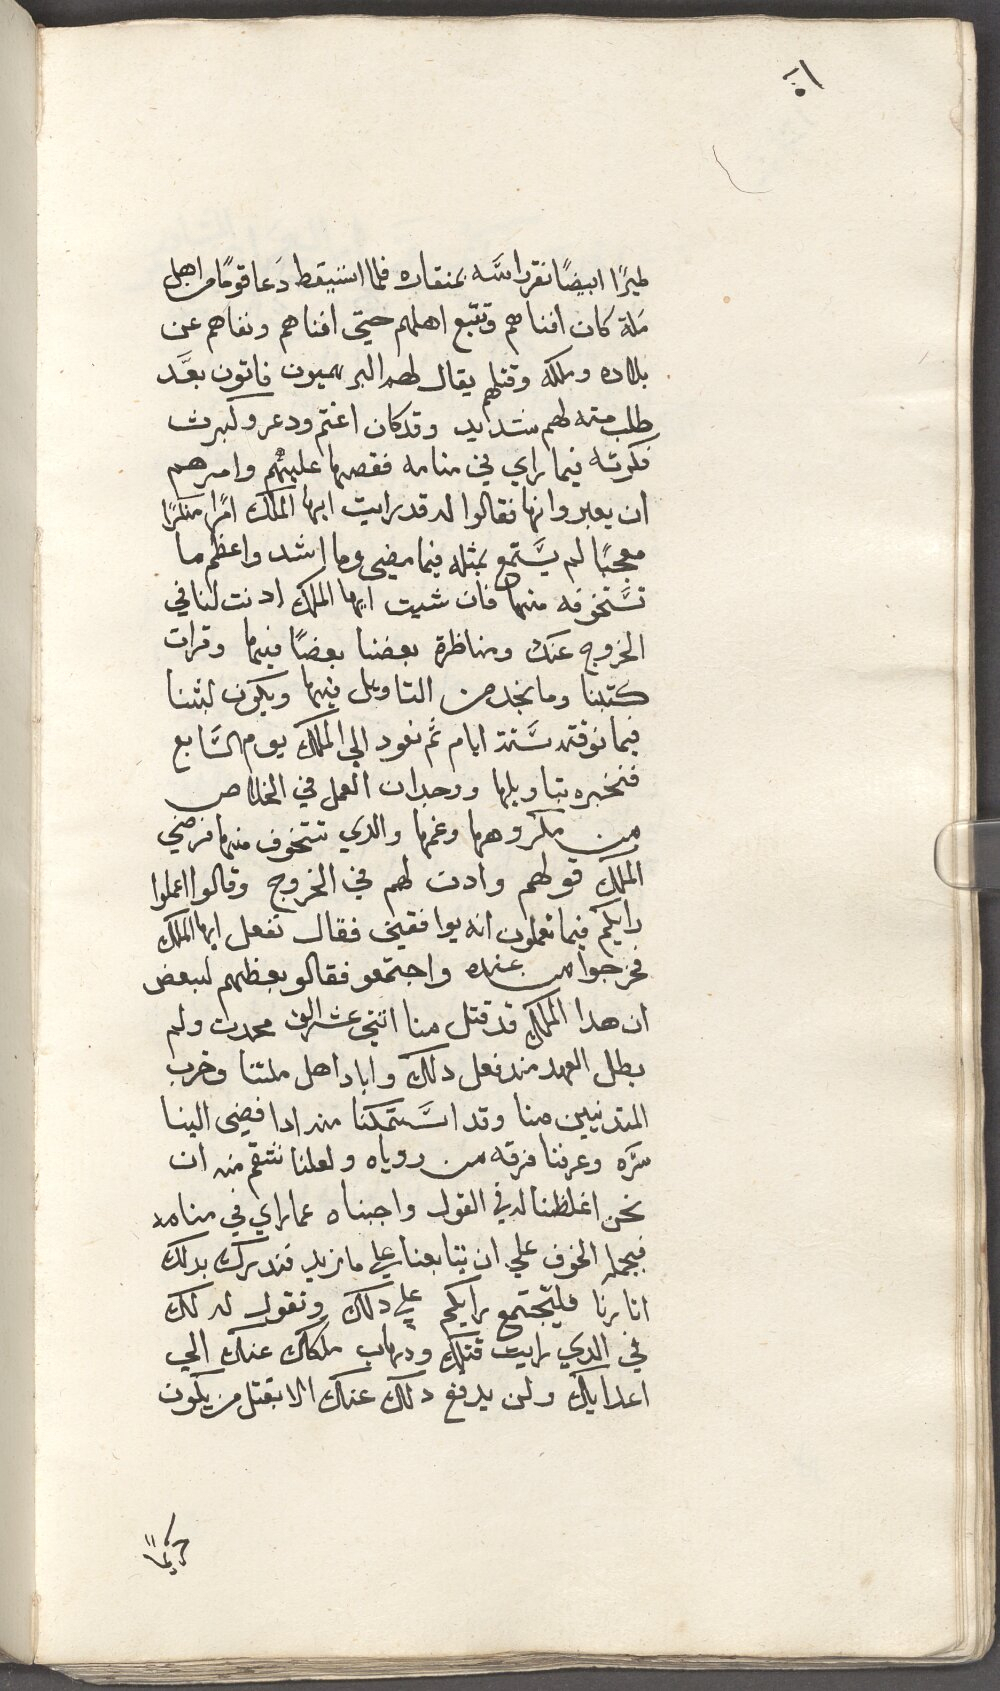 ١٥
طيرًا ابيضًا نقر راسَّه بمنقاره فلما استيقط دَعا قومًا من اهل
مَلة كان افناهم وتتبع اهلهم حتي افناهم ونفاهم عن
بلاده وملكه وقتلهم يقال لهم البرهميون فاتون بعَّد
طلب منه لهم شديد وقد كان اغتم ودعر وكبرت
فكرته فيما راي في منامه فقصها عليهم وامرهم
ان يعبروا نها فقالوا له قد رايت ايها الملك امرًا منكرًا
معجبًا لم يسَّتمع بمثله فيما مضي وما اشد واعظم ما
تسَّتخوفه منها فان شيت ايها الملك ادنت لنا في
الخروج عنك ومناظرة بعضنا بعضًا فيها وقرات
كتبنا وما نجد من التاويل فيها ويكون لبثنا
فيما نوقته سَّتة ايام ثم نعود الي الملك يوم السَّابع
فنخبره بتاويلها ووجدان العمل في الخلاص
من مكروهها وغمها والدي تتخوف منها فرضي
الملك قولهم وادن لهم في الخروج وقالوا اعملوا
رايكم فيما تعملون انه يوافقني فقال نفعل ايها الملك
فخرجوا من عنده واجتمعو فقالو بعظهم لبعض
ان هدا الملك قد قتل منا اتني عشر الف محدت ولم
بطل العهد مند فعل دلك واباد اهل ملتنا وخرب
المتدنيين منا وقد استَّمكنا منه ادا فضي الينا
سَّره وعرفنا فرقه من روياه ولعلنا ننتقم منه ان
نحن اغلظنا له في القول واجبناه عما راي في منامه
فيجمله الخوف علي ان يتابعنا علي ما نريد فندرك بدلك
اتارنا فليجتمع رايكم علي دلك ونقول له لك
في الدي رايت قتلك ودهاب ملكك عنك الي
اعدايك ولن يدفع دلك عنك الا بقتل من يكون